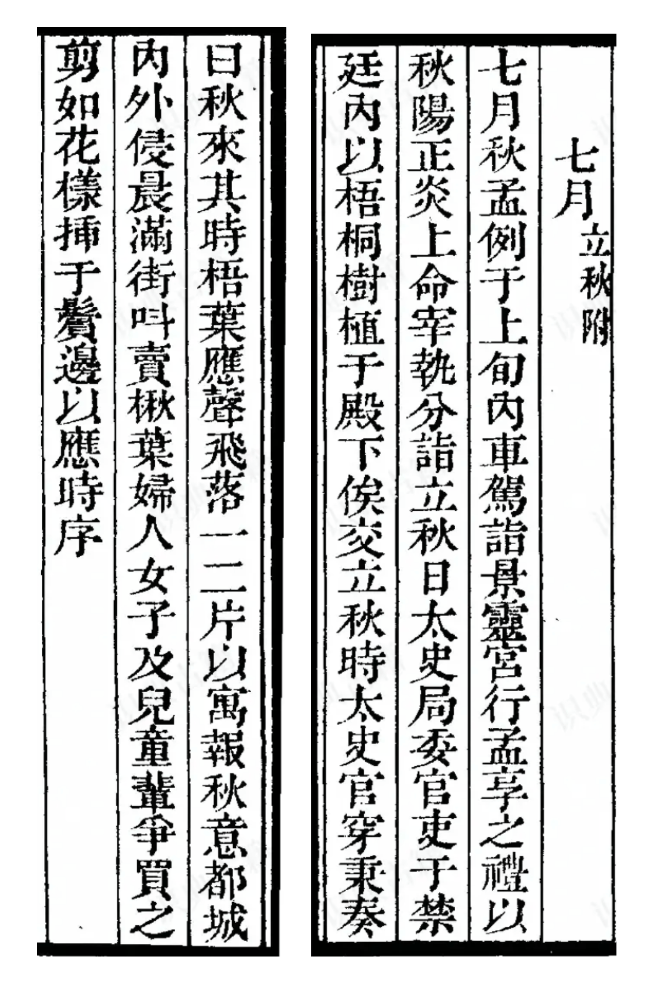 七月立秋附
七月秋孟例于上旬內車駕詣景靈宮行孟享之禮以
秋陽正炎上命宰執分詣立秋日太史局委官吏于禁
廷內以梧桐樹植于殿下俟交立秋時太史官穿秉奏
曰秋來其時梧葉應聲飛落一二片以寓報秋意都城
內外侵晨滿街叫賣楸葉婦人女子及兒童輩爭買之
剪如花樣揷于鬢邊以應時序